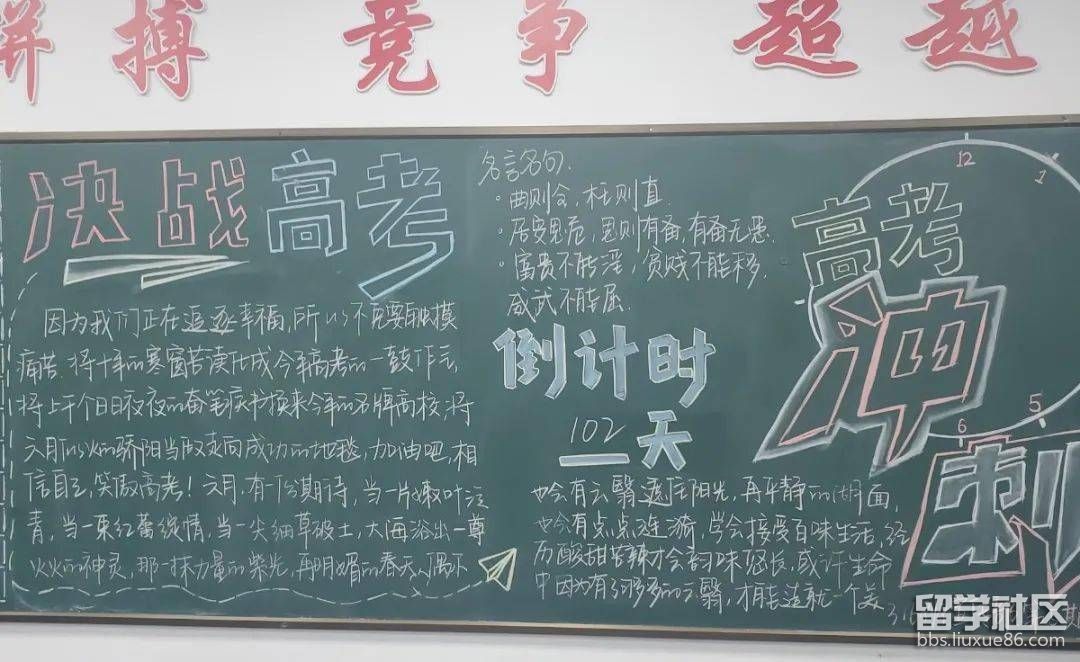 拼搏 竞争 超越
决战高考
因为我们正在追逐幸福,所以不要触摸
痛苦.将十年的寒窗苦读化成今年高考的一鼓作气
将上千个日日夜夜的奋笔疾书换来今年的名牌高校;将
六月似火的骄阳当做走向成功的地毯,加油吧,相
信自己,笑傲高考!六月,有一份期待,当一片嫩叶泣
青,当一束红蕾绽情,当一尖细草破土,大海浴出一尊
火火的神灵,那一抹力量的紫光,再明媚的春天,偶尔
名言名句:
·曲则全,枉则直
·居安思危,思则有备,有备无患.
·富贵不能淫,贫贱不能移,
威武不能屈.
倒计时
102天
也会有云翳遮住阳光,再平静的湖面
也会有点点涟漪,学会接受百味生活,经
历酸甜苦辣才会韵味悠长,或许生命
中因为有了多多的云翳,才能造就一个美
高考
冲
刺
12
1
5
6
316
期
留学社区
bbs.liuxue86.com